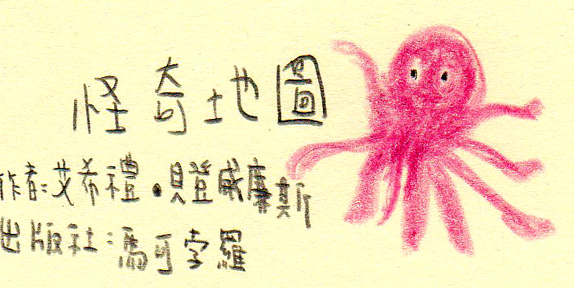 怪奇地圖
作者:艾希禮.貝登威廉斯
出版社:馮可孛羅